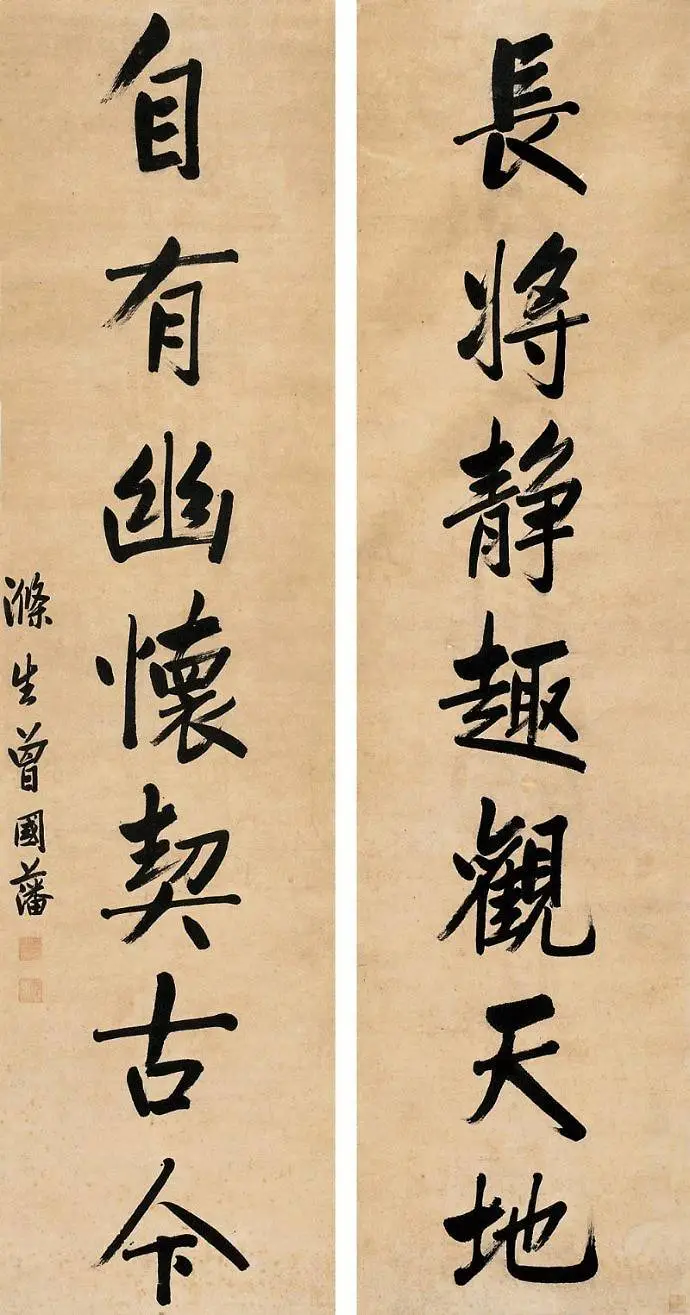 長將静趣觀天地
自有幽懷契古今
滌生曾國藩